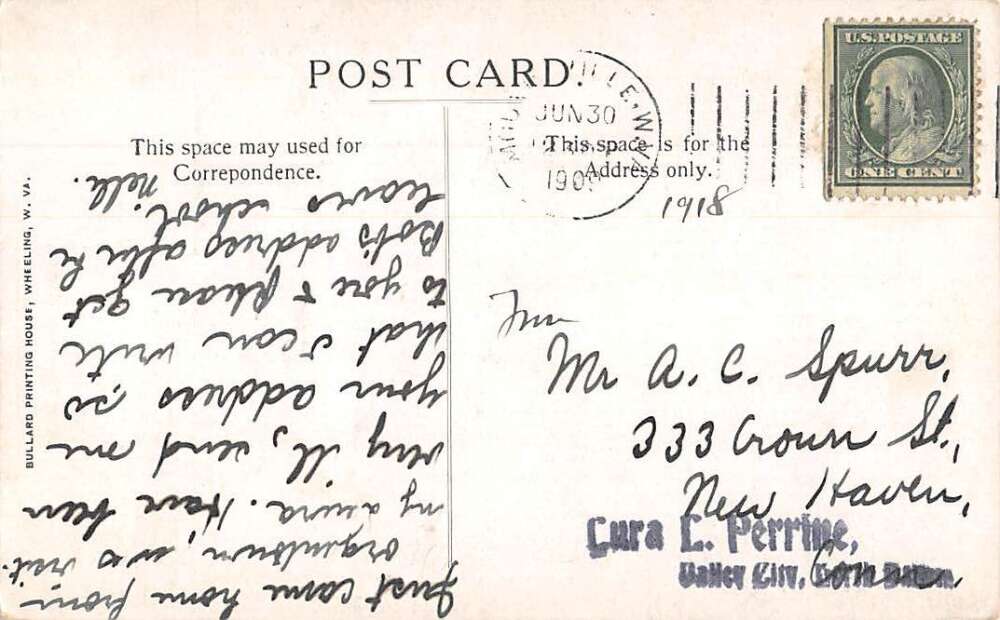 POST CARD.
This space may used for
Correpondence.
This space is for the
Address only.
BULLARD PRINTING HOUSE, WHEELING, W. VA.
U.S. POSTAGE
ONE CENT
VILLE. W. VA.
JUN 30
190
1918
Mr A. C. Spurr,
333 Crown St.,
New Haven,
Conn.
Cura E. Perrine,
Valley City, North Dakota.
Just came home from
organtown, was visit.
my aunt. Have been
very ill, send me
your address so
that I can write
to you & please get
Bob's address after he
leaves school. Nell.